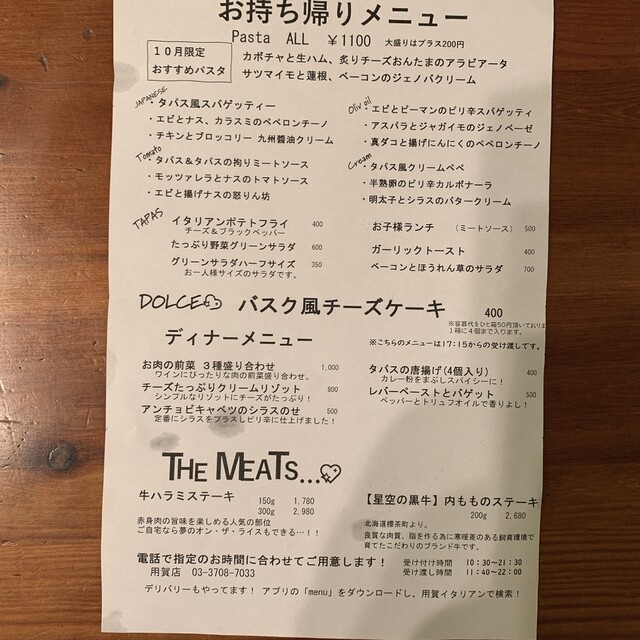 お持ち帰りメニュー
Pasta ALL ￥1100 大盛りはプラス200円
10月限定
おすすめパスタ
カボチャと生ハム、炙りチーズおんたまのアラビアータ
サツマイモと蓮根、ベーコンのジェノバクリーム
JAPANESE
・タパス風スパゲッティー
・エビとナス、カラスミのペペロンチーノ
・チキンとブロッコリー 九州醬油クリーム
Oliv oil
・エビとピーマンのピリ辛スパゲッティ
・アスパラとジャガイモのジェノベーゼ
・真ダコと揚げにんにくのペペロンチーノ
Tomato
・タパス＆タパスの拘りミートソース
・モッツァレラとナスのトマトソース
・エビと揚げナスの怒りん坊
Cream
・タパス風クリームペペ
・半熟卵のピリ辛カルボナーラ
・明太子とシラスのバタークリーム
TAPAS
イタリアンポテトフライ 400
チーズ＆ブラックペッパー
たっぷり野菜グリーンサラダ 600
グリーンサラダハーフサイズ 350
お一人様サイズのサラダです。
お子様ランチ （ミートソース） 500
ガーリックトースト 400
ベーコンとほうれん草のサラダ 700
DOLCE バスク風チーズケーキ 400
※容器代をひと箱50円頂いており
1箱に4個まで入ります。
ディナーメニュー
※こちらのメニューは17:15からの受け渡しです。
お肉の前菜 3種盛り合わせ 1,000
ワインにぴったりなお肉の前菜盛り合わせ。
チーズたっぷりクリームリゾット 800
シンプルなリゾットにチーズがたっぷり！
アンチョビキャベツのシラスのせ 500
定番にシラスをプラスしピリ辛に仕上げました！
タパスの唐揚げ(4個入り) 400
カレー粉をまぶしスパイシーに！
レバーペーストとバゲット 500
ペッパーとトリュフオイルで香りよし！
THE MEATS...
牛ハラミステーキ
150g 1,780
300g 2,980
赤身肉の旨味を楽しめる人気の部位
ご自宅なら夢のオン・ザ・ライスもできる…！！
【星空の黒牛】内もものステーキ
200g 2,680
北海道標茶町より。
良質な肉質、脂を作る為に寒暖差のある飼育環境で
育てたこだわりのブランド牛です。
電話で指定のお時間に合わせてご用意します！
用賀店 03-3708-7033
受け付け時間 10:30~21:30
受け渡し時間 11:40~22:00
デリバリーもやってます！ アプリの「menu」をダウンロードし、用賀イタリアンで検索！